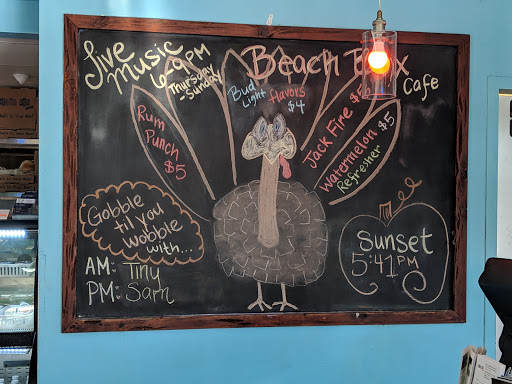 Live Music
6-9PM
Thursday
-Sunday
Beach Box
Cafe
Bud Light flavors $4
Rum
Punch
$5
Jack Fire $5
Watermelon $5
Refresher
Gobble
til you
wobble
with...
AM: Tiny
PM: Sam
Sunset
5:41PM